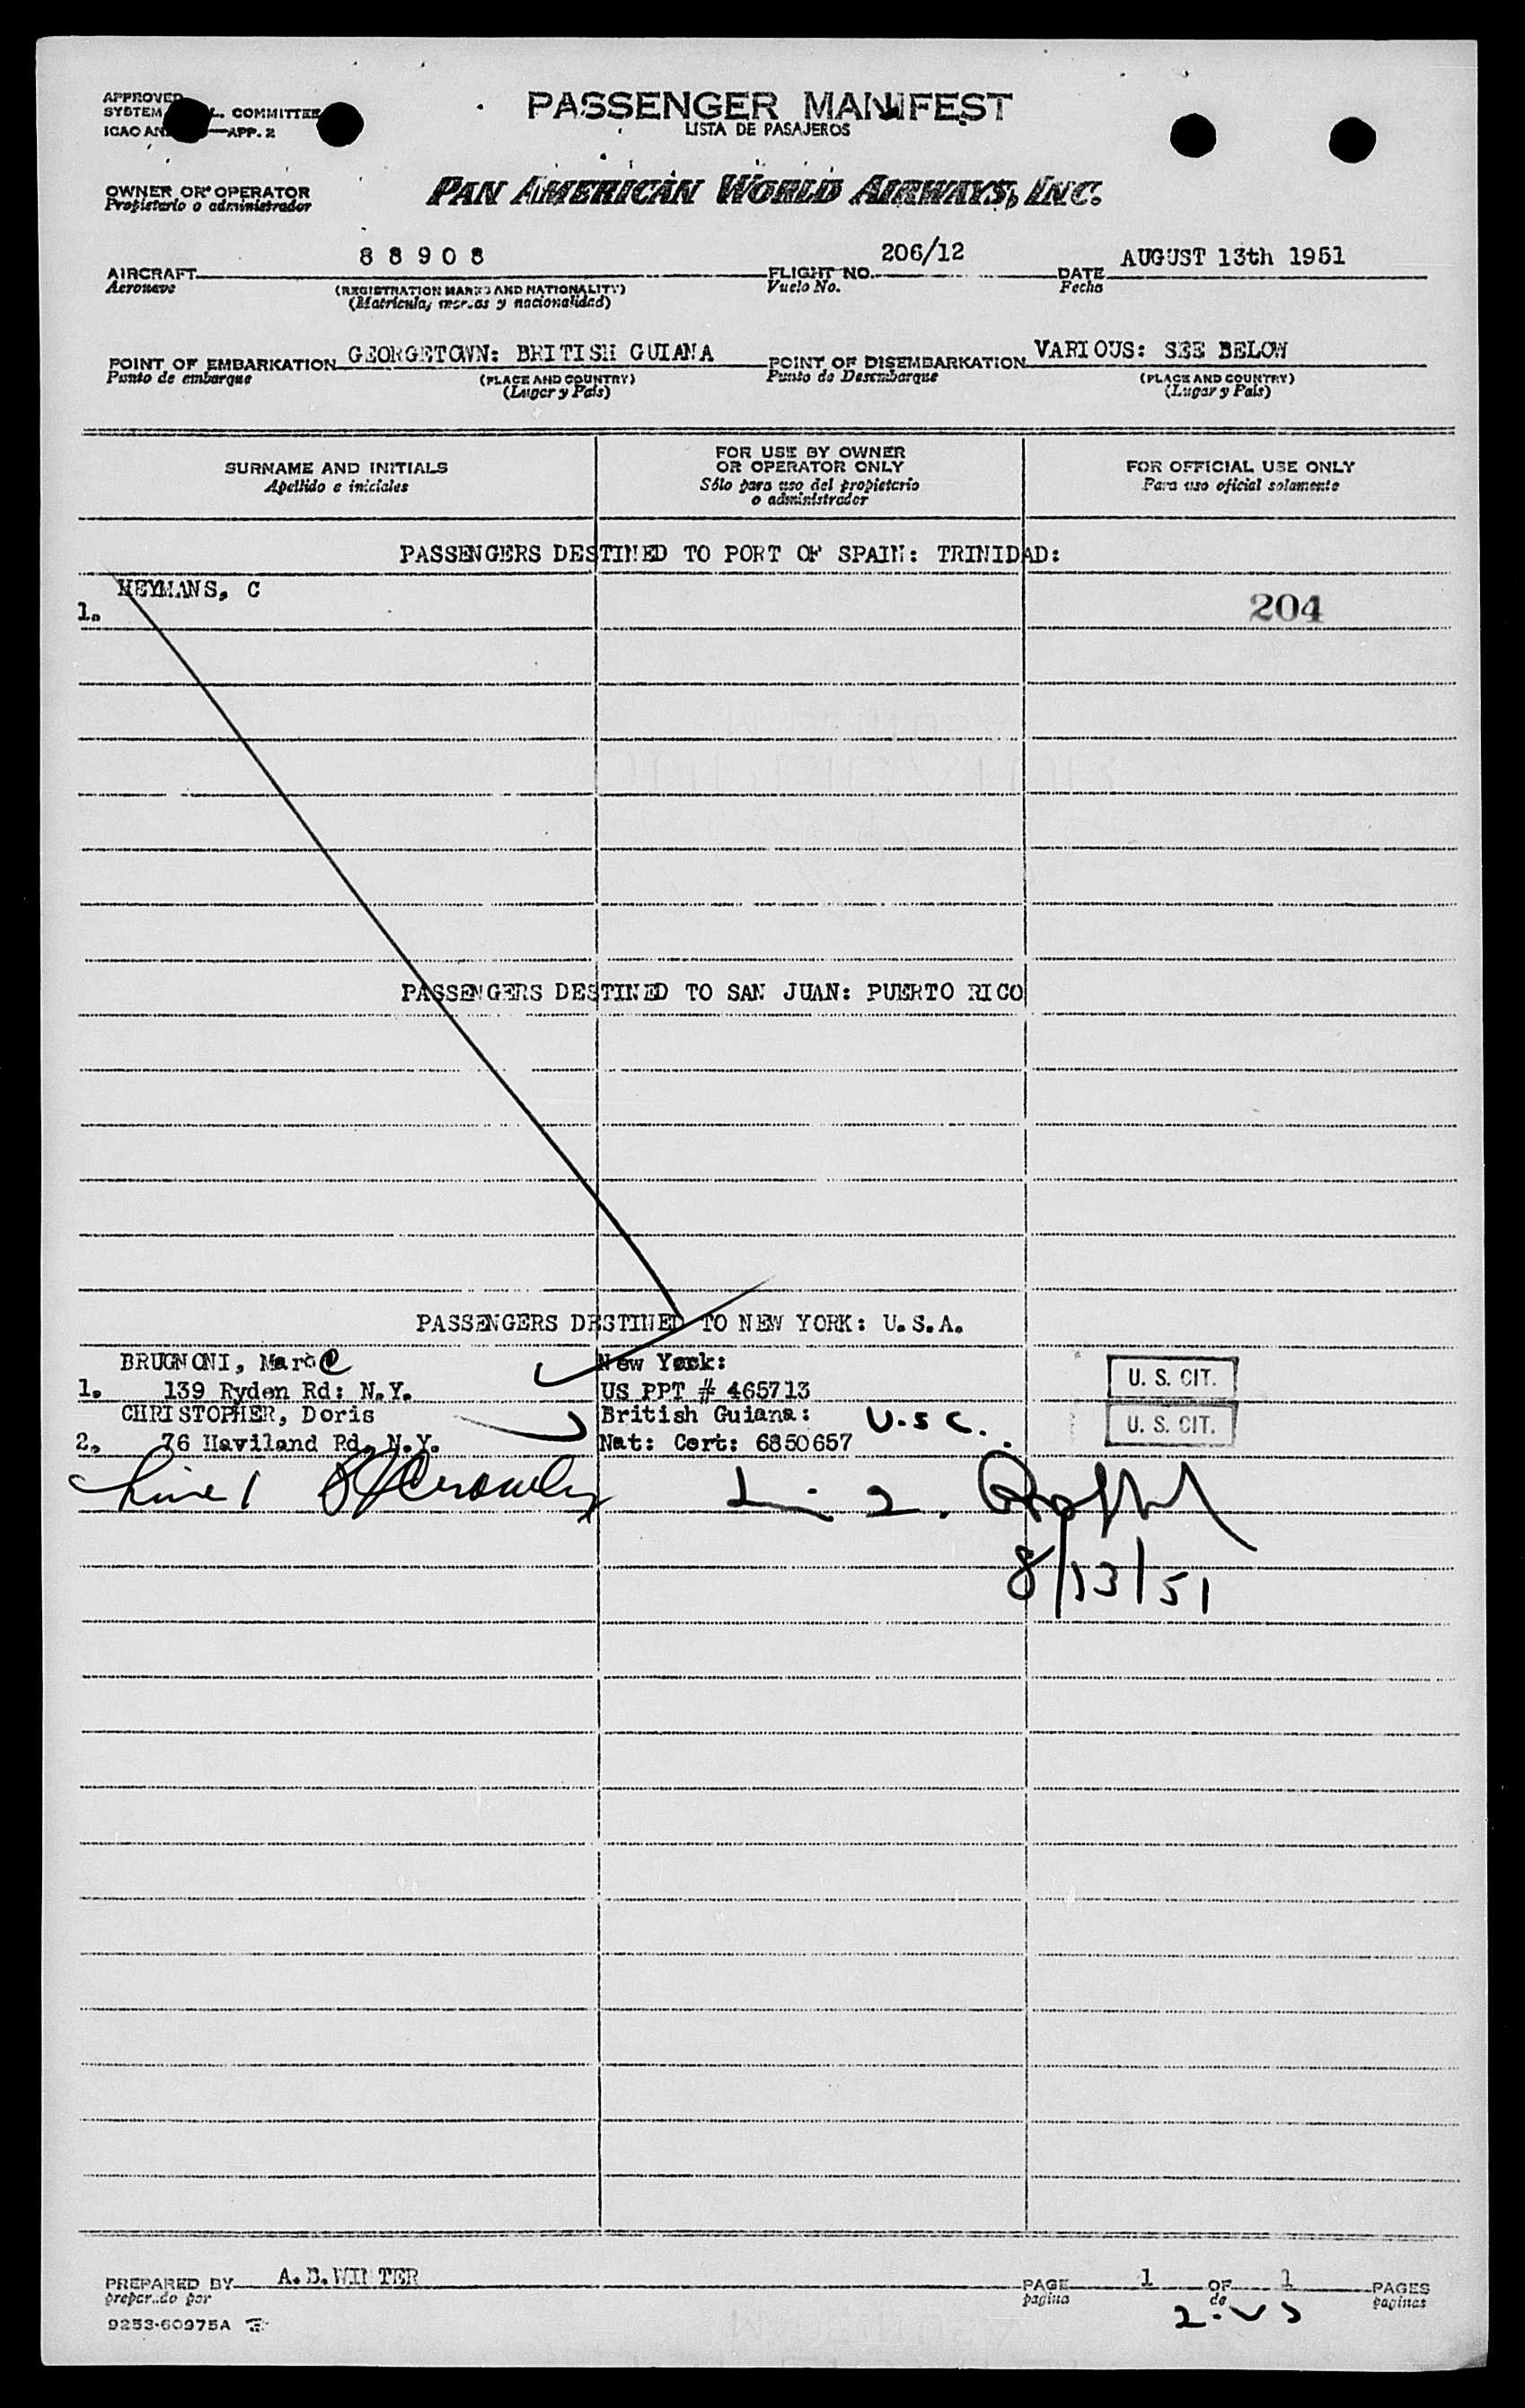 APPROVED
SYSTEM COMMITTEE
ICAO APP. 2
PASSENGER MANIFEST
LISTA DE PASAJEROS
OWNER OR OPERATOR
Propietario o administrador
PAN AMERICAN WORLD AIRWAYS, INC.
AIRCRAFT 88908 FLIGHT NO. 206/12 DATE AUGUST 13th 1951
Aeronave (REGISTRATION MARKS AND NATIONALITY) Vuelo No. Fecha
(Matricula, marcas y nacionalidad)
POINT OF EMBARKATION GEORGETOWN: BRITISH GUIANA POINT OF DISEMBARKATION VARIOUS: SEE BELOW
Punto de embarque (PLACE AND COUNTRY) Punto de Desembarque (PLACE AND COUNTRY)
(Lugar y País) (Lugar y País)
SURNAME AND INITIALS FOR USE BY OWNER OR OPERATOR ONLY FOR OFFICIAL USE ONLY
Apellido e iniciales Sólo para uso del propietario o administrador Para uso oficial solamente
PASSENGERS DESTINED TO PORT OF SPAIN: TRINIDAD:
HEYMANS, C
1. 204
PASSENGERS DESTINED TO SAN JUAN: PUERTO RICO
PASSENGERS DESTINED TO NEW YORK: U.S.A.
BRUGNONI, Mar New York:
1. 139 Ryden Rd: N.Y. US PPT # 465713 U. S. CIT.
CHRISTOPHER, Doris British Guiana: U.S.C. U. S. CIT.
2. 76 Haviland Rd, N.Y. Nat: Cert: 6850657
Line 1 Li 2.
8/13/51
PREPARED BY A.B.WINTER PAGE 1 OF 1 PAGES
preparado por pagina de paginas
9253-60975A 2-US